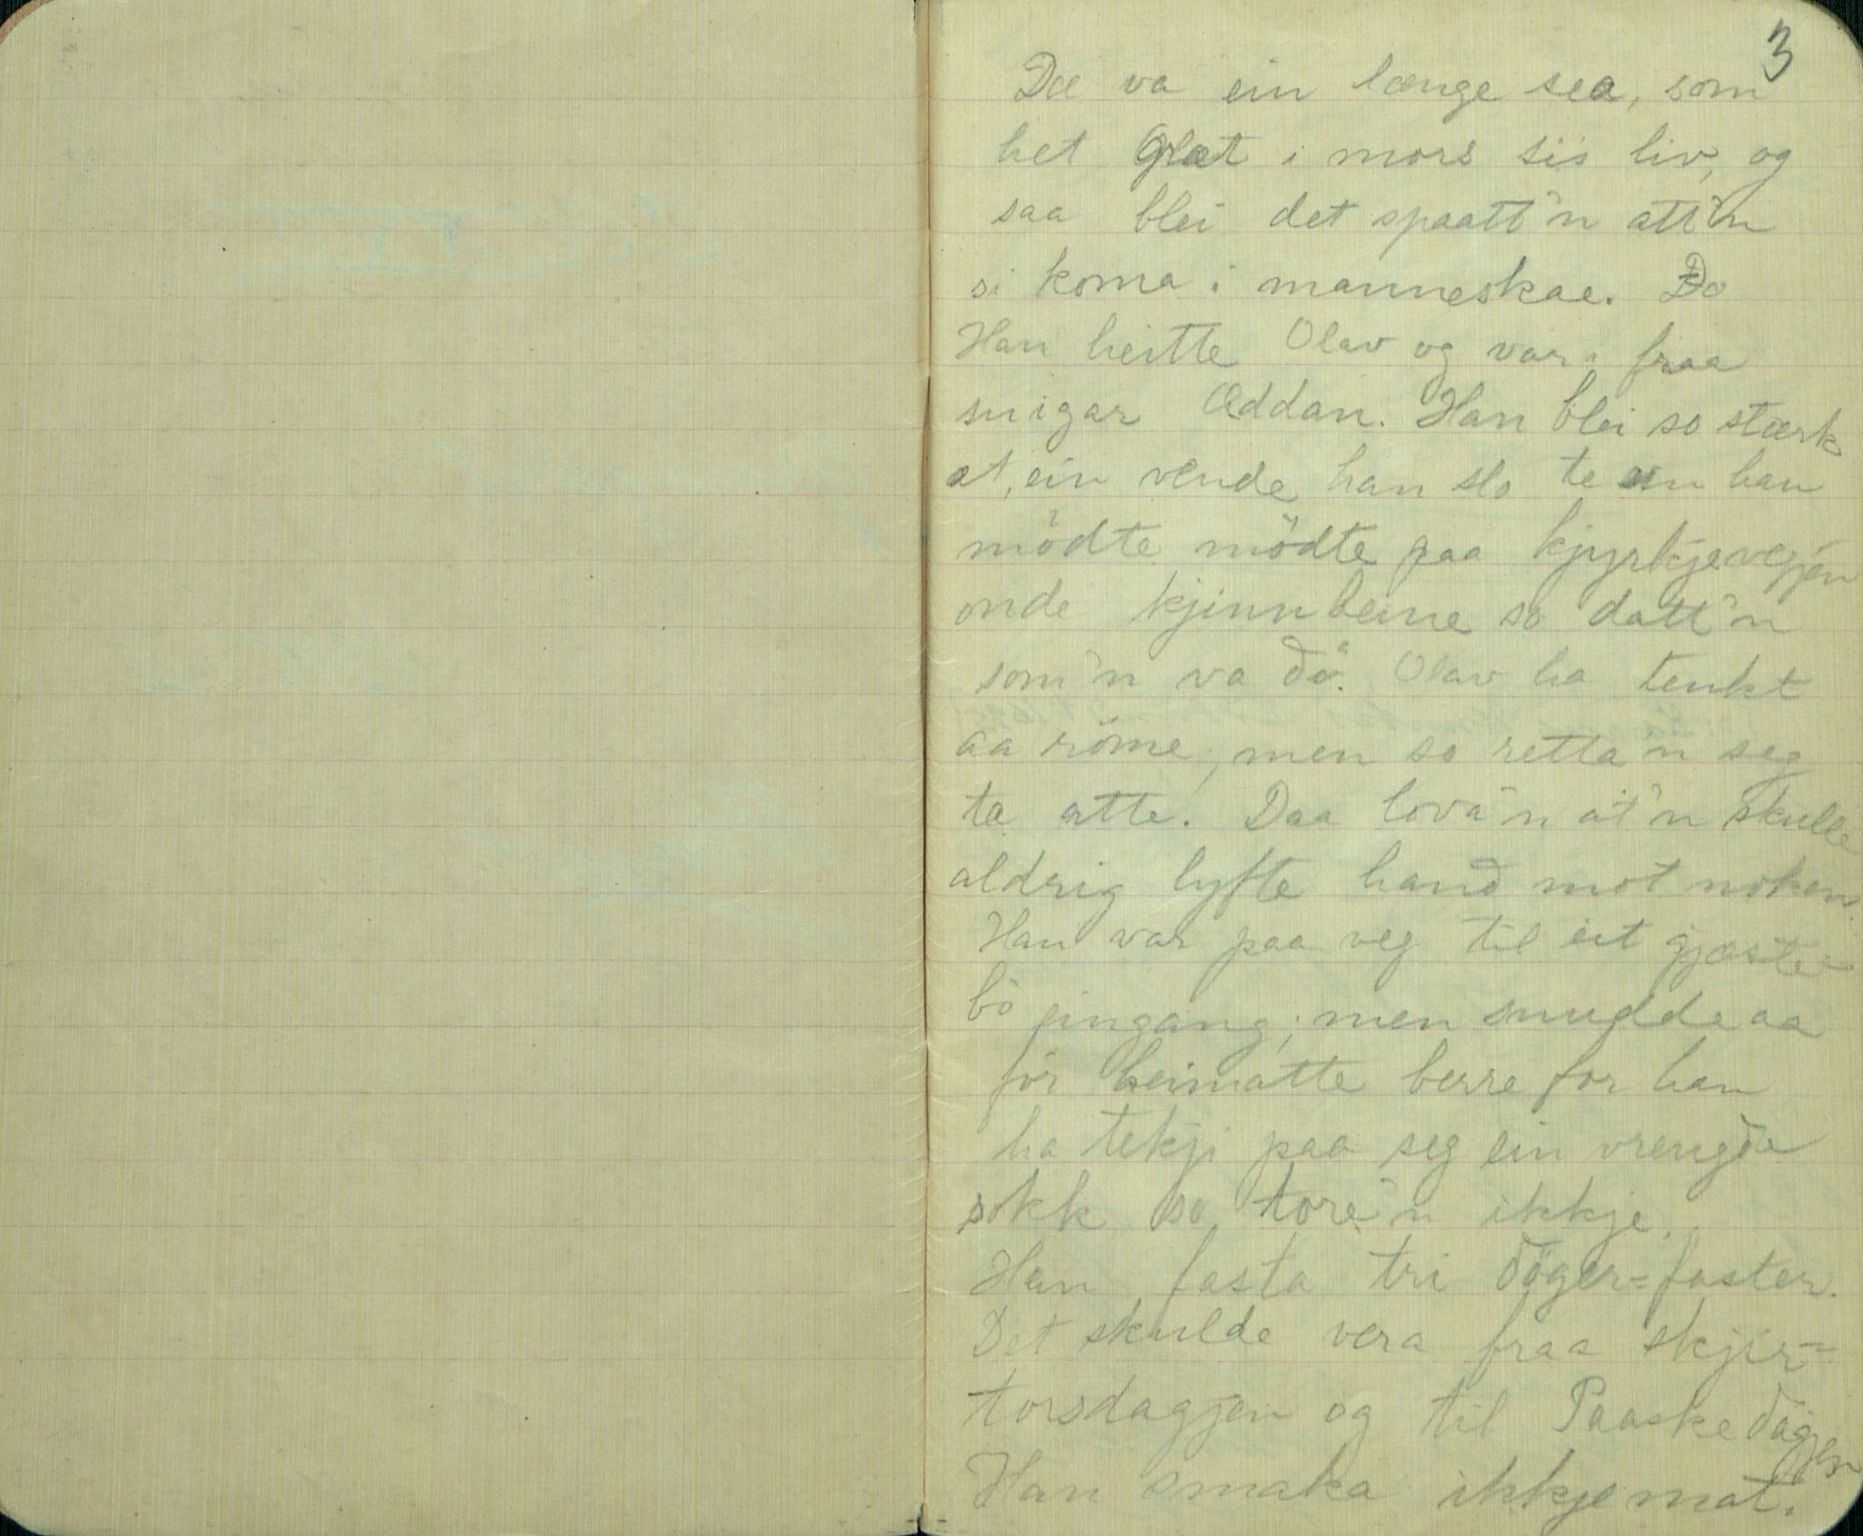 3
Dæ va ein længe sea, som
het Glæt i mors sis liv, og
saa blei det spaatt'n att'n
si koma i manneskae. Do
Han heitte Olav og var fraa
snigar Øddan. Han blei so stærk
at, ein vende han slo te ein han
mödte mödte paa kjyrkjevegjen
onde kjinnbeine so datt'n
som'n va dö. Olav ha tenkt
aa röme, men so retta'n seg
te atte. Daa lova'n at'n skulle
aldrig lyfte hand mot noken.
Han var paa veg til eit gjæste-
bö eingang; men snudde aa
för heimatte berre for han
ha tekji paa seg ein vrengda
sokk so tore'n ikkje.
Han fasta tri döger=faster.
Det skulde vera fraa skjir=
torsdagjen og til Paaskedagjen
Han smaka ikkje mat.